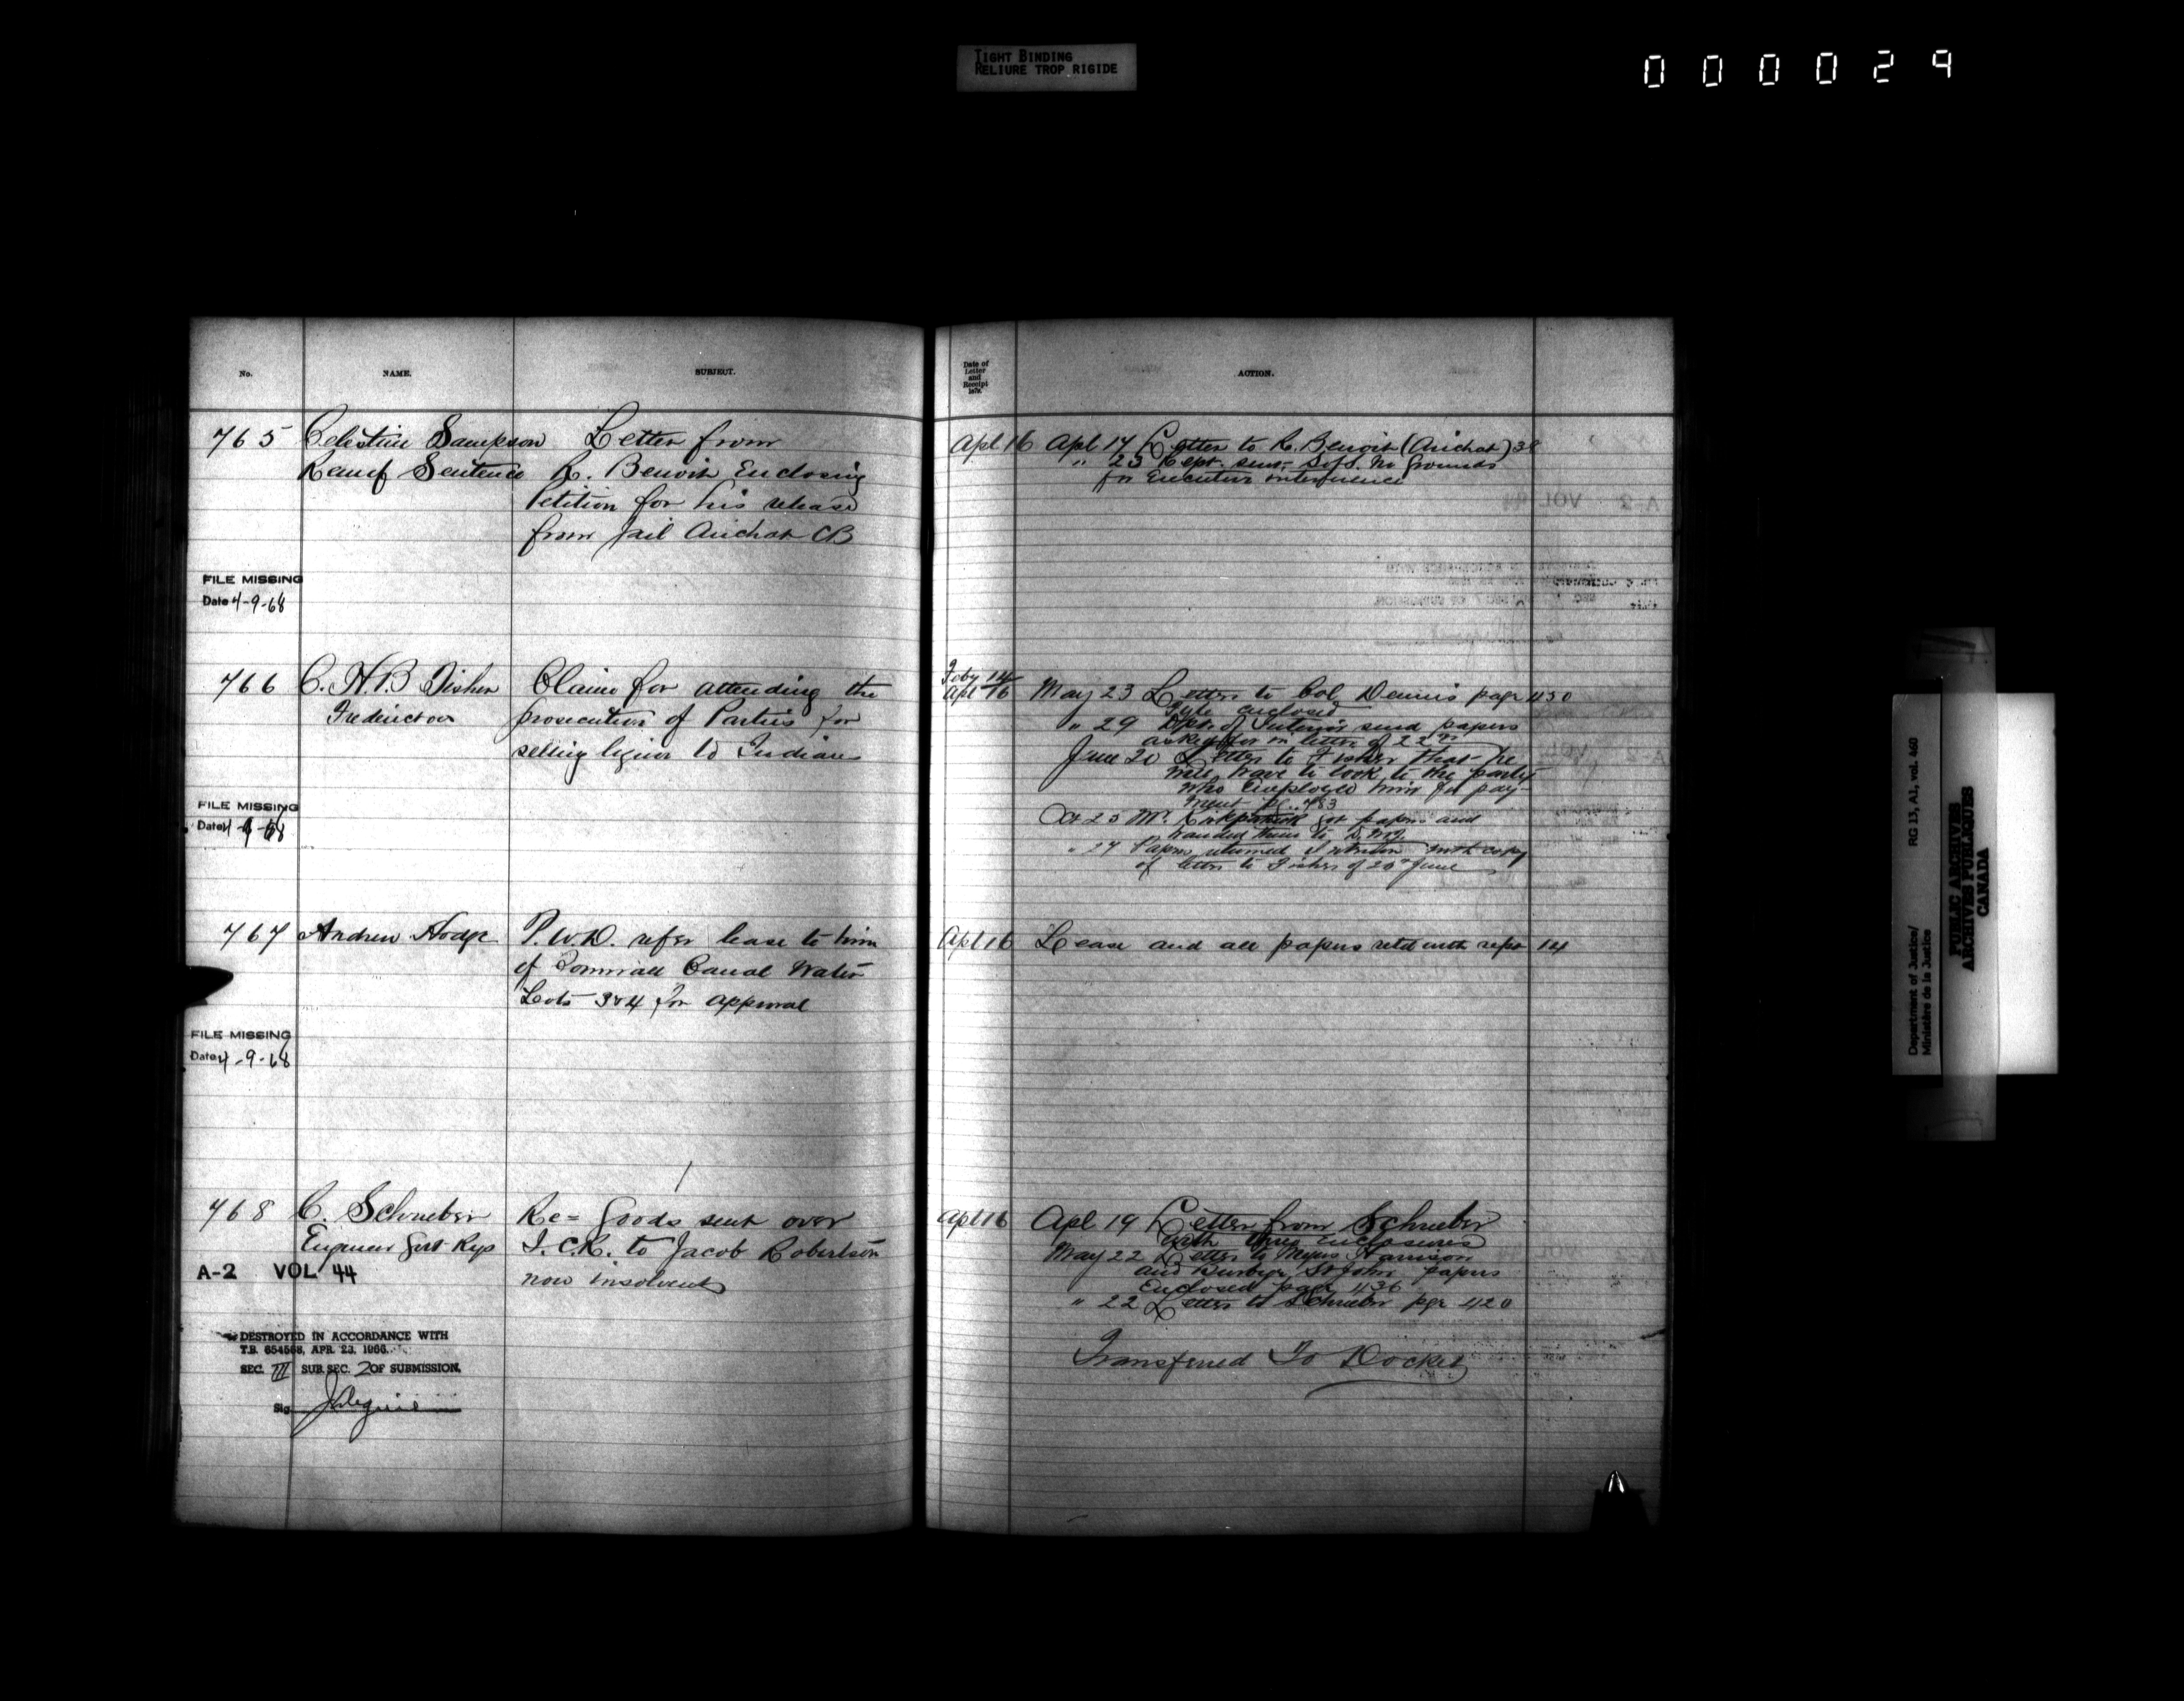 TIGHT BINDING
RELIURE TROP RIGIDE
000029
No.
NAME.
SUBJECT.
765
Celestine Sampson
Remf Sentence
Letter from
R. Benoit Enclosing
Petition for his release
from Jail Arichat CB
FILE MISSING
Date 4-9-68
766
C. H. B Fisher
Fredericton
Claim for attending the
prosecution of Parties for
selling liquor to Indians
FILE MISSING
Date 4-9-68
767
Andrew Hodge
P. W. D. refer lease to him
of Cornwall Canal Water
Lots 3 & 4 for approval
FILE MISSING
Date 4-9-68
768
C. Schrieber
Engineer Govt Rys
Re= Goods sent over
I. C. R. to Jacob Robertson
now insolvent
A-2 VOL 44
DESTROYED IN ACCORDANCE WITH
T.B. 654568, APR. 23, 1966.
SEC. III SUB SEC. 2 OF SUBMISSION.
Sig
Date of
Letter
and
Receipt
187
ACTION.
Apl 16
Apl 17 Letter to R. Benoit (Arichat) 38
" 23 Rept. sent. No grounds
for Executive interference
Feby 14
Apl 16
May 23 Letter to Col Dennis page 450
File enclosed
" 29 Dept. of Interior send papers
asked for in letter of 22nd
June 20 Letter to Fisher that he
will have to look to the party
who Employed him for pay-
ment pg. 483
Oct 25 Mr. Kirkpatrick got papers and
handed them to D. M. J.
" 27 Papers returned Interior with copy
of letter to Fisher of 20th June
Apl 16
Lease and all papers retd with rept 14
Apl 16
Apl 19 Letter from Schrieber
with three Enclosures
May 22 Letter to Harrison
and Burbige St John papers
Enclosed page 436
" 22 Letter to Schrieber pge 420
Transferred To Docket
Department of Justice/
Ministère de la Justice
RG 13, A1, vol. 460
PUBLIC ARCHIVES
ARCHIVES PUBLIQUES
CANADA